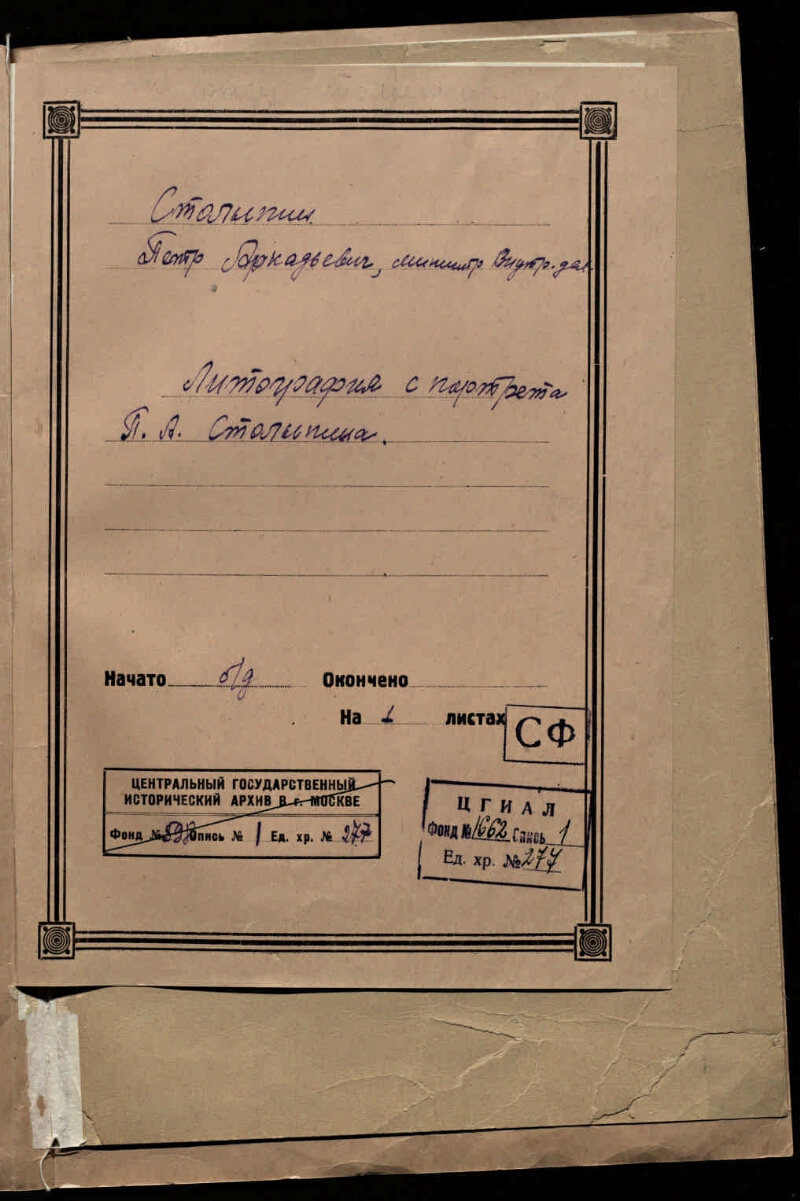 Столыпин
Петр Аркадьевич, министр Внутр. дел
Литография с портрета
П. А. Столыпина.
Начато б/д Окончено
На 1 листах
СФ
ЦЕНТРАЛЬНЫЙ ГОСУДАРСТВЕННЫЙ
ИСТОРИЧЕСКИЙ АРХИВ В г. МОСКВЕ
Фонд № Опись № 1 Ед. хр. № 277
ЦГИАЛ
Фонд № 1662 Опись 1
Ед. хр. № 277